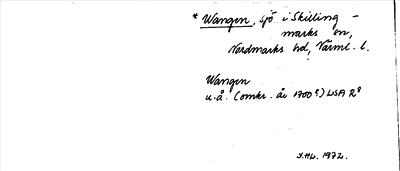 * Wangen, sjö i Skilling-
marks sn,
Nordmarks hd, Värml. l.
Wangen
u.å. (omkr. år 1700?) LSA R8
1972.